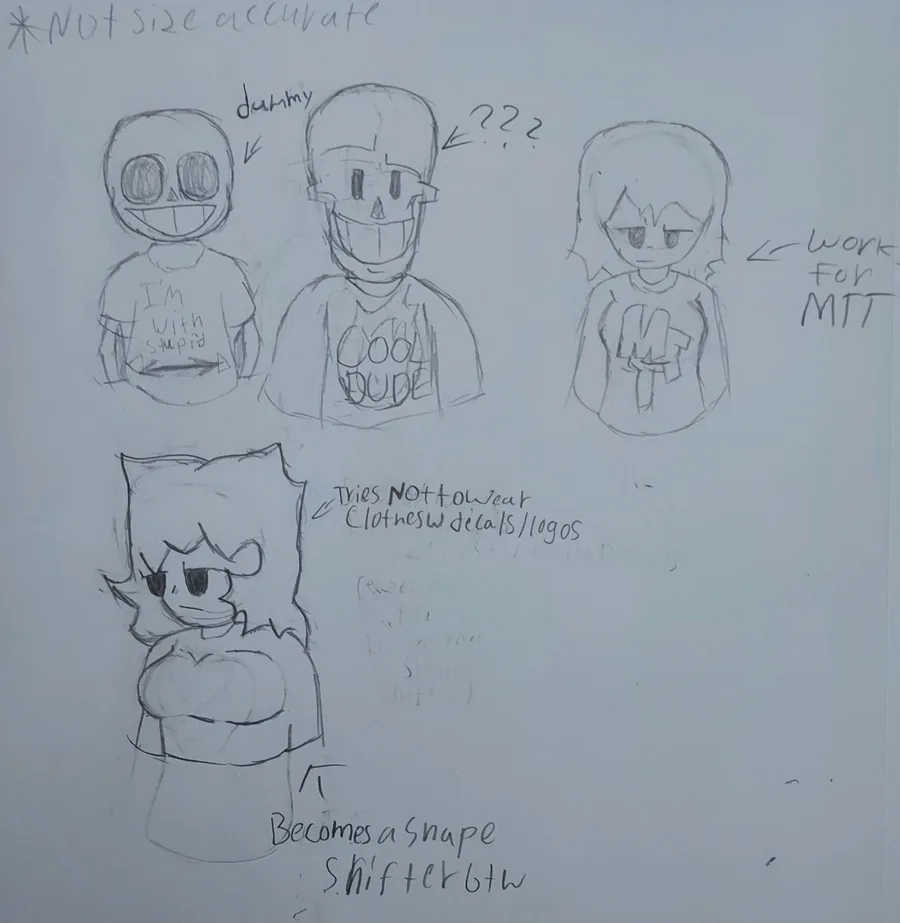 *Not size accurate
dummy
???
I'm
with
stupid
COOL
DUDE
Work
for
MTT
MTT
Tries Not to wear
Clothes w decals/logos
Becomes a shape
shifter btw